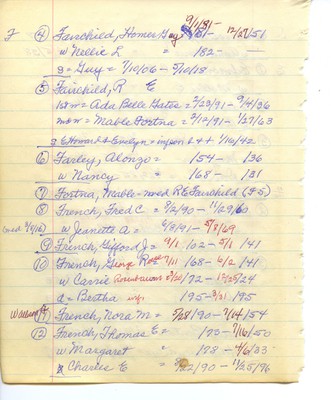 9/1/81-
F (4) Fairchild, Homer Guy 81- 12/27/51
w Nellie L = 182 -
s = Guy = 7/10/06 - 5/10/18
(5) Fairchild, R E
1st m = Ada Belle Gates = 2/23/91 - 9/4/36
m = Mable Fortna = 3/12/91 - 1/27/63
s Howard & Evelyn = 1/10/42
(6) Farley, Alonzo = 154 - 136
w Nancy = 168 - 131
(7) Fortna, Mable - med R E Fairchild (F-5)
(8) French, Fred C = 8/2/90 - 11/29/60
w Jeanette A = 6/8/91 - 5/8/69
(9) French, Gifford J = 9/1/02 - 5/1/41
(10) French, George Ross 7/11/68 - 6/2/41
w Carrie 8/20/72 - 12/25/24
d = Bertha inf. 195 - 3/21/95
(11) French, Nora M = 5/28/90 - 7/14/54
(12) French, Thomas E = 173 - 7/16/50
w Margaret = 178 - 4/6/33
s Charles E = /22/90 - 11/25/96